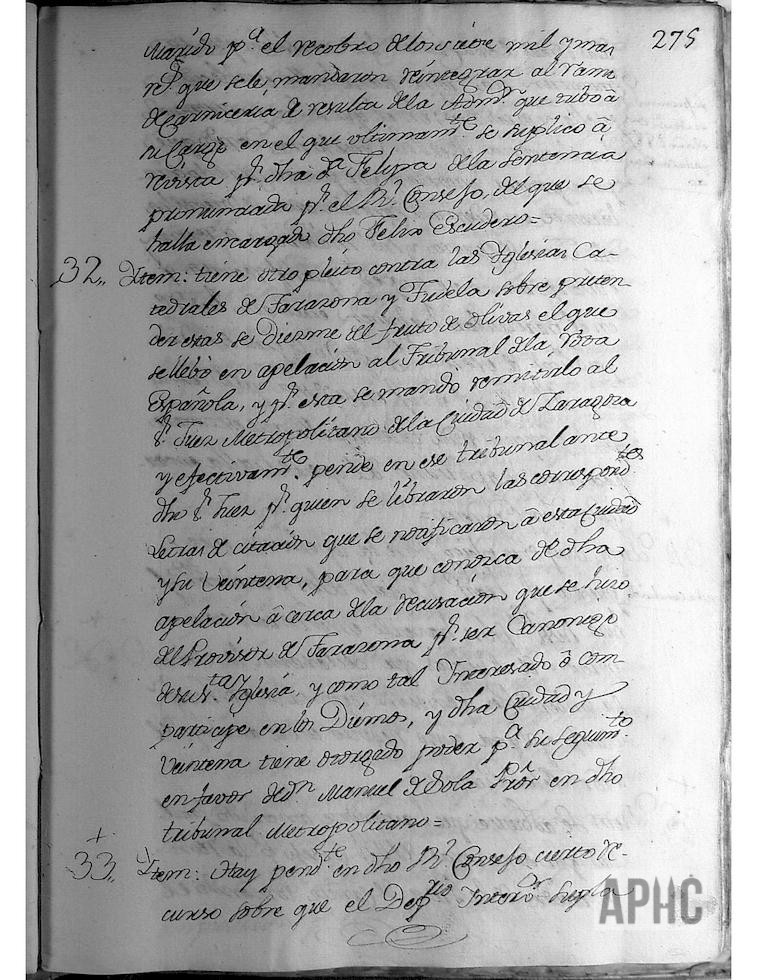 275
Marido pª el recobro de los siete mil y mas
rˢ. que sele, mandaron reintegrar al ramo
de Carniceria de resulta de la Admⁿ. que tubo â
su Cargo en el que ultimamᵗᵉ. se suplicó â
revista pʳ. dha dª Felipa de la sentencia
pronunciada pʳ. el Rˡ. Consejo, del que se
halla encargado dho Felix Escudero=
32,, Ytem: tiene otro pleito contra las Yglesias Ca-
tedrales de Tarazona y Tudela sobre preten-
der estas se Diezme del fruto de olivas el que
se llebó en apelacion al Tribunal dela Rota
Española, y pʳ. esta se mandó remitirlo al
sʳ. Juez Metropolitano de la Ciudad de Zaragoza
y efectivamᵗᵉ. pende en ese tribunal ante
dho sʳ. Juez pʳ. quien se libraron las correspondᵗᵉˢ
Letras de citacion que se notificaron â esta Ciudad
y su Veintena, para que conozca de dha
apelación â cerca dela recusación que se hizo
del Provisor de Tarazona pʳ. ser Canonigo
de su Sᵗᵃ Yglesia, y como tal Ynteresado ô com-
participe en los Diezmos, y dha Ciudad y
Veintena tiene otorgado poder pª. su seguimᵗᵒ.
en favor de dⁿ. Manuel de Sola Prôr en dho
tribunal Metropolitano=
+
33,, Ytem: Hay pendᵗᵉ en dho Rˡ. Consejo cierto re-
curso sobre que el Depʳⁱᵒ Interôʳ supla
APHC